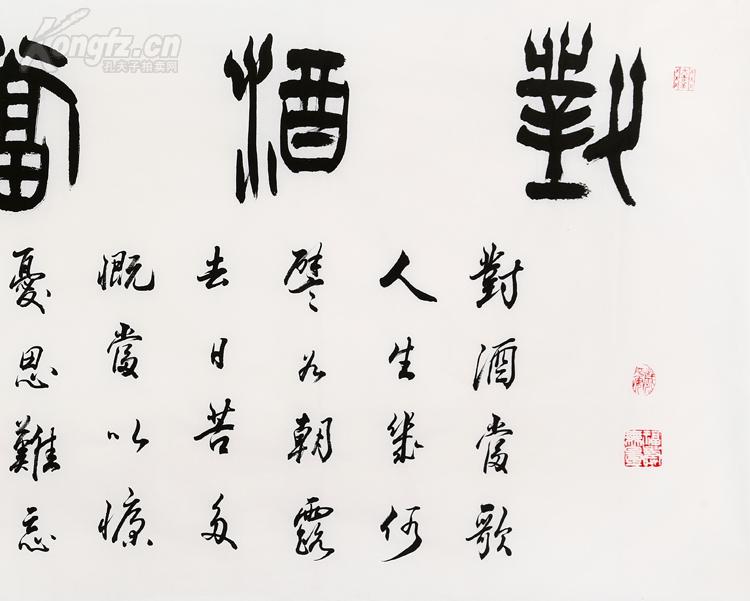 對酒當
對酒當歌
人生幾何
譬如朝露
去日苦多
慨當以慷
憂思難忘
Kongfz.cn
孔夫子拍卖网